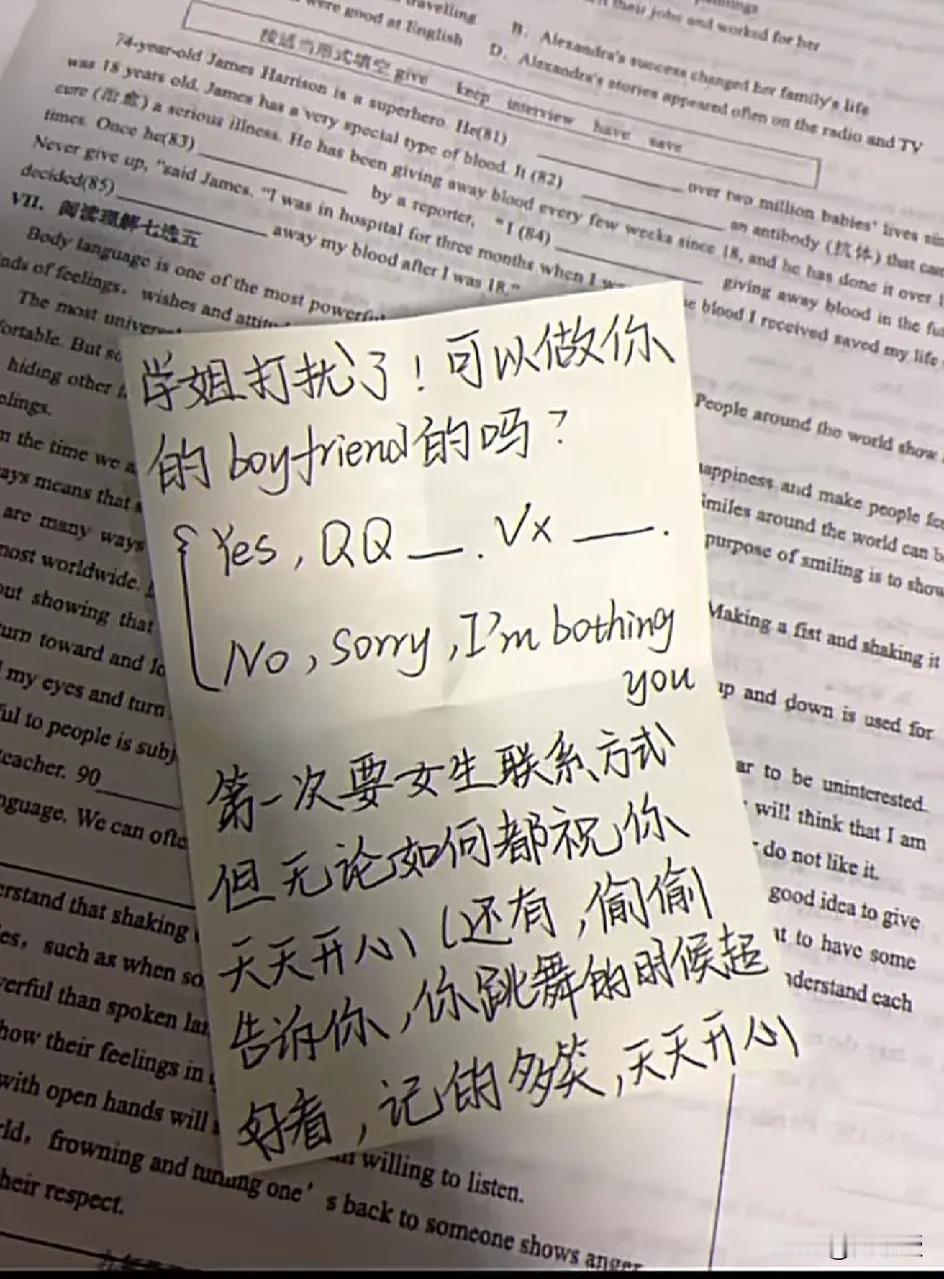 travelling
were good at English
their jobs and worked for her
B. Alexandra's success changed her family's life
D. Alexandra's stories appeared often on the radio and TV
按适当形式填空 give keep interview have save
74-year-old James Harrison is a superhero. He(81) ________ over two million babies' lives
was 18 years old. James has a very special type of blood. It (82) ________ an antibody (抗体) that can
cure (治愈) a serious illness. He has been giving away blood every few weeks since 18, and he has done it over
times. Once he(83) ________ by a reporter, "I (84) ________ giving away blood in the
Never give up, "said James. "I was in hospital for three months when I
blood I received saved my life
decided(85) ________ away my blood after I was 18."
VII. 阅读理解七选五
Body language is one of the most
of feelings, wishes and
The most
But
hiding other
People around the world show
the time we
means that
happiness and make people
are many ways
Smiles around the world can
most worldwide.
purpose of smiling is to show
showing that
Making a fist and shaking it
turn toward and
my eyes and turn
up and down is used for
to people is
to be uninterested.
teacher. 90
will think that I am
We can
do not like it.
good idea to give
understand that shaking
to have some
such as when
understand each
than spoken
how their feelings in
with open hands will
willing to listen.
frowning and turning one's back to someone shows anger
their respect.
学姐打扰了！可以做你
的boyfriend的吗？
Yes, QQ __. Vx __.
No, sorry, I'm bothing
you
第一次要女生联系方式
但无论如何都祝你
天天开心（还有，偷偷
告诉你，你跳舞的时候超
好看，记的多笑，天天开心）